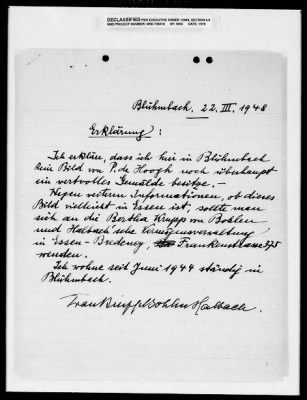 DECLASSIFIED PER EXECUTIVE ORDER 12958, SECTION 3.5
NND PROJECT NUMBER: NND 775019 BY: NND DATE: 1978
Blühnbach, 22. III. 1948
Erklärung:
Ich erkläre, dass ich hier in Blühnbach
kein Bild von P. de Hoogh noch überhaupt
ein wertvolles Gemälde besitze, –
Wegen weiteren Informationen, ob dieses
Bild vielleicht in Essen ist, sollte man
sich an die Bertha Krupp von Bohlen
und Halbach'sche Vermögensverwaltung
in Essen-Bredeney, Frankenstrasse 375
wenden.
Ich wohne seit Juni 1944 ständig in
Blühnbach.
Frau Krupp Bohlen Halbach.